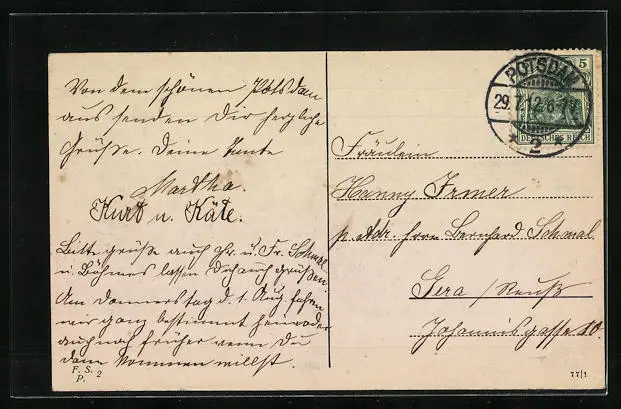 Von dem schönen Potsdam
aus senden Dir herzliche
Grüße. Deine Tante
Martha.
Kurt u. Käte.
Bitte grüße auch Hr. u. Fr. Schmal
u. Böhmes lassen Dich auch grüßen.
Am Donnerstag d. 1. Aug. fahren
wir ganz bestimmt
auch früher wenn Du
dann kommen willst.
F. S. 2
P.
POTSDAM
29.7.12.6-7N
* 2 *
5
DEUTSCHES REICH
Fräulein
Hanny Irmer
p. Adr. Herrn Bernhard Schmal
Gera / Reuß
Johannisgasse 10.
77/1